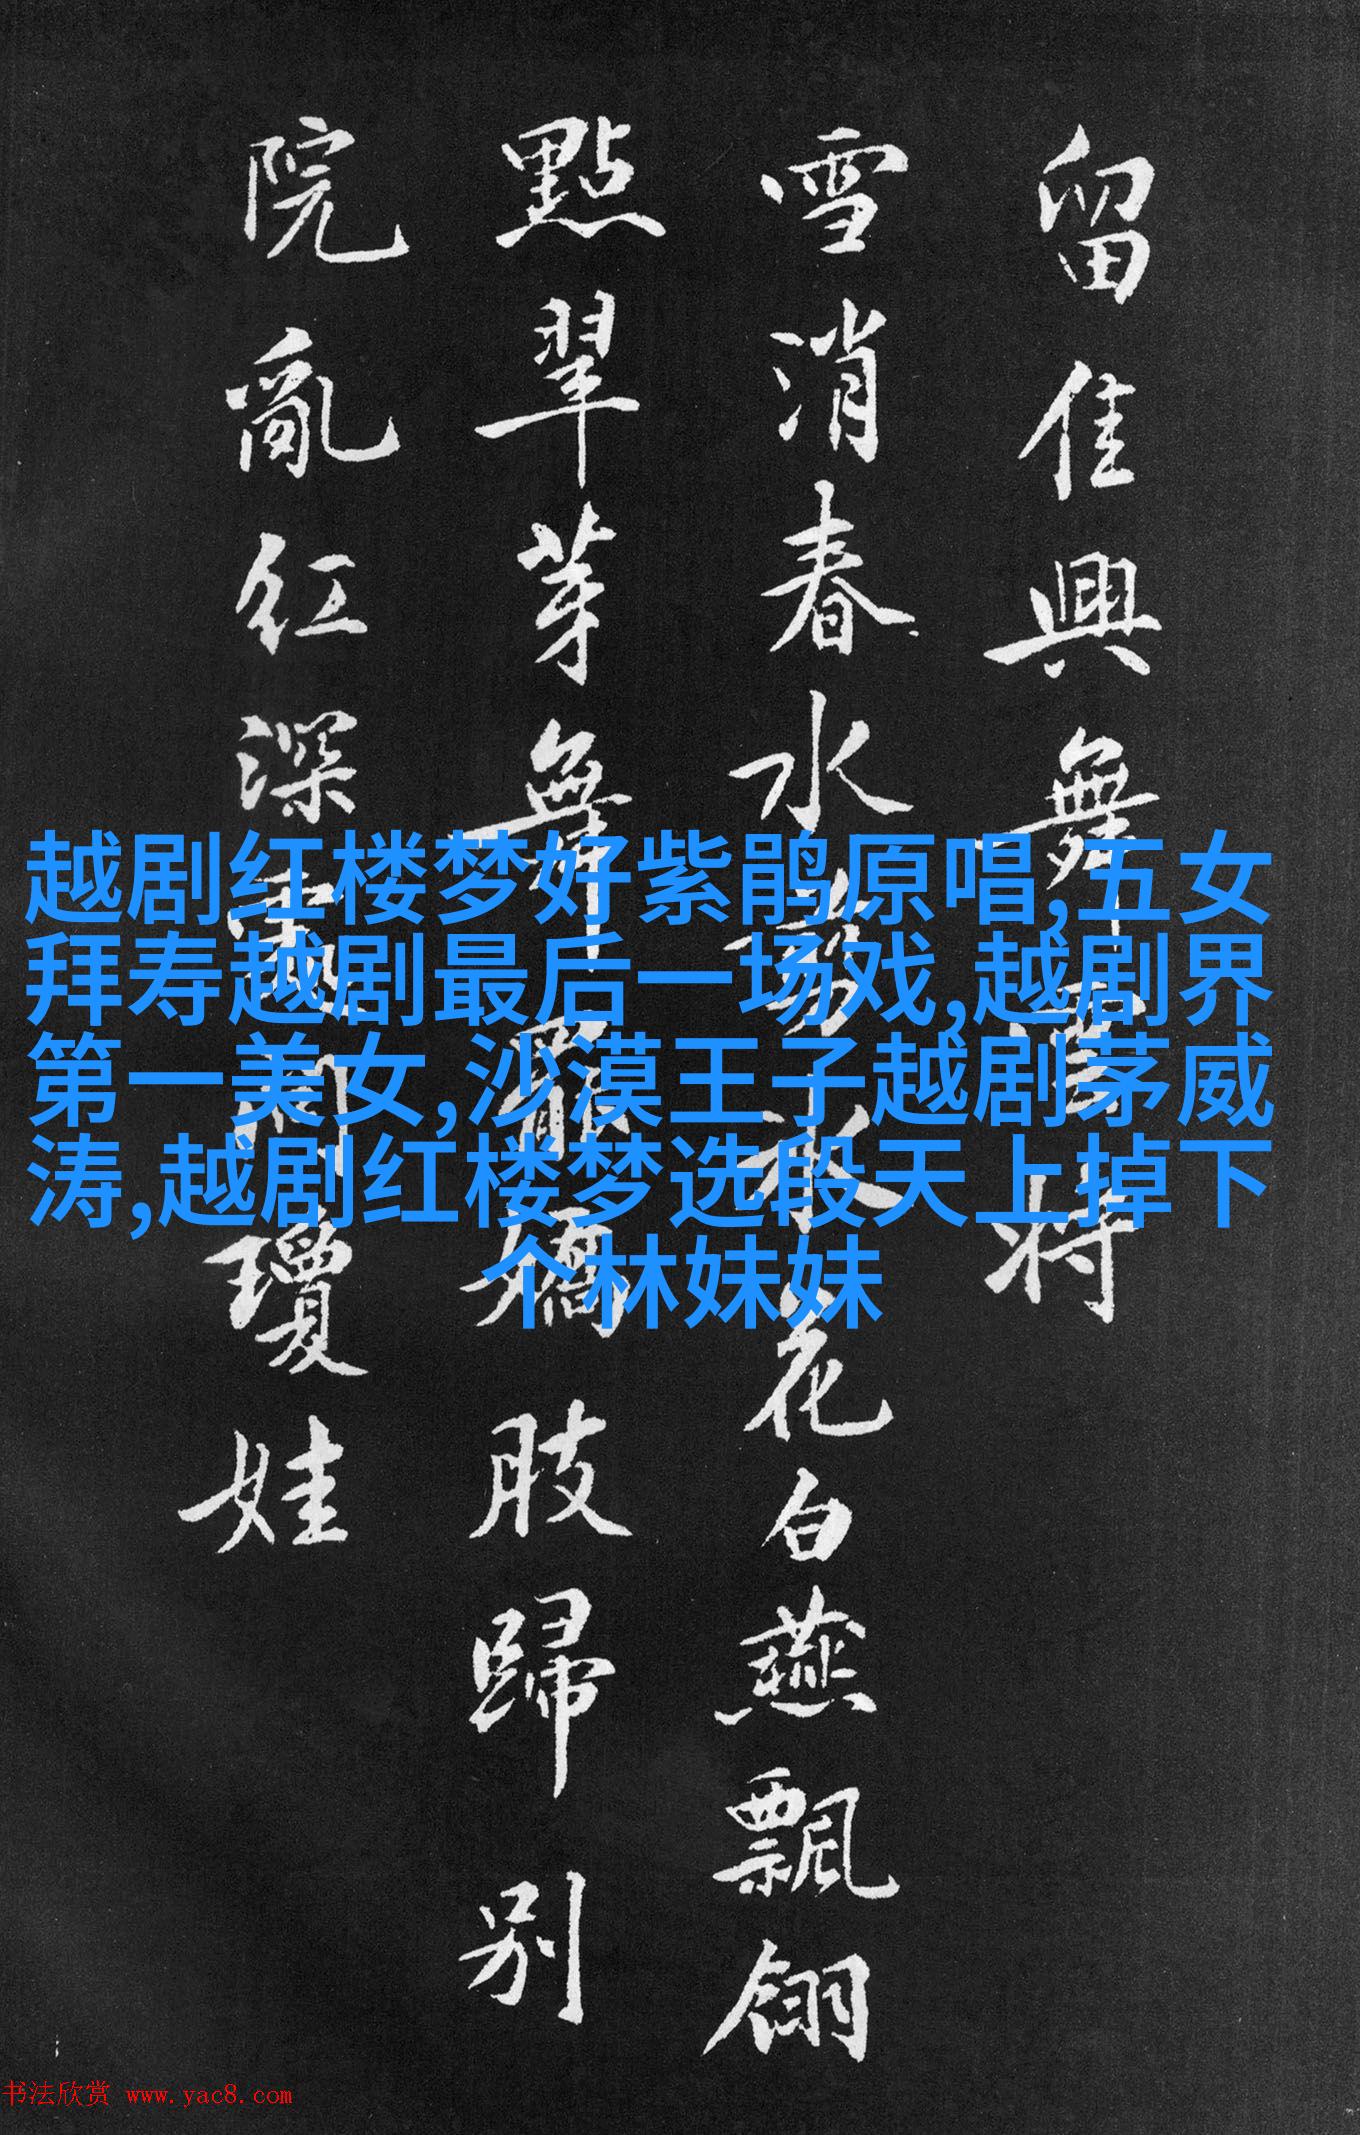 留佳興舞雩將
雪消春水
花白燕飄翎
點翠芽舞罷嬌肢歸別
院亂紅深處閙瓊娃
越剧红楼梦好紫鹃原唱,五女
拜寿越剧最后一场戏,越剧界
第一美女,沙漠王子越剧茅威
涛,越剧红楼梦选段天上掉下
个林妹妹
书法欣赏 www.yac8.com